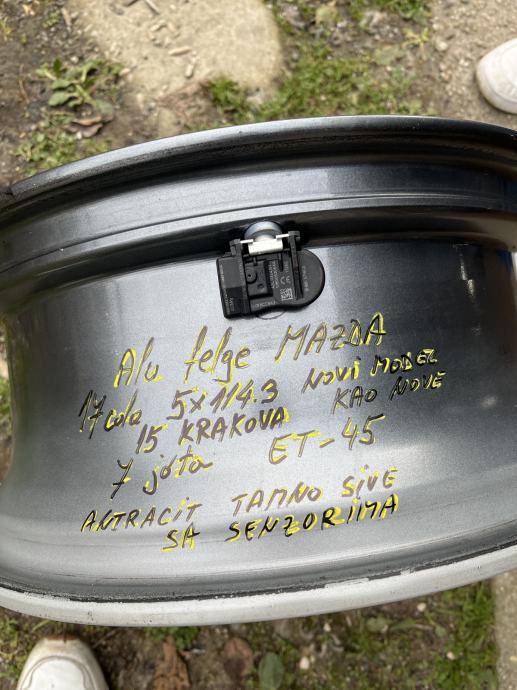 Alu felge MAZDA
17 cola 5x114.3 NOVI MODEL
15 KRAKOVA KAO NOVE
7 jota ET-45
ANTRACIT TAMNO SIVE
SA SENZORIMA